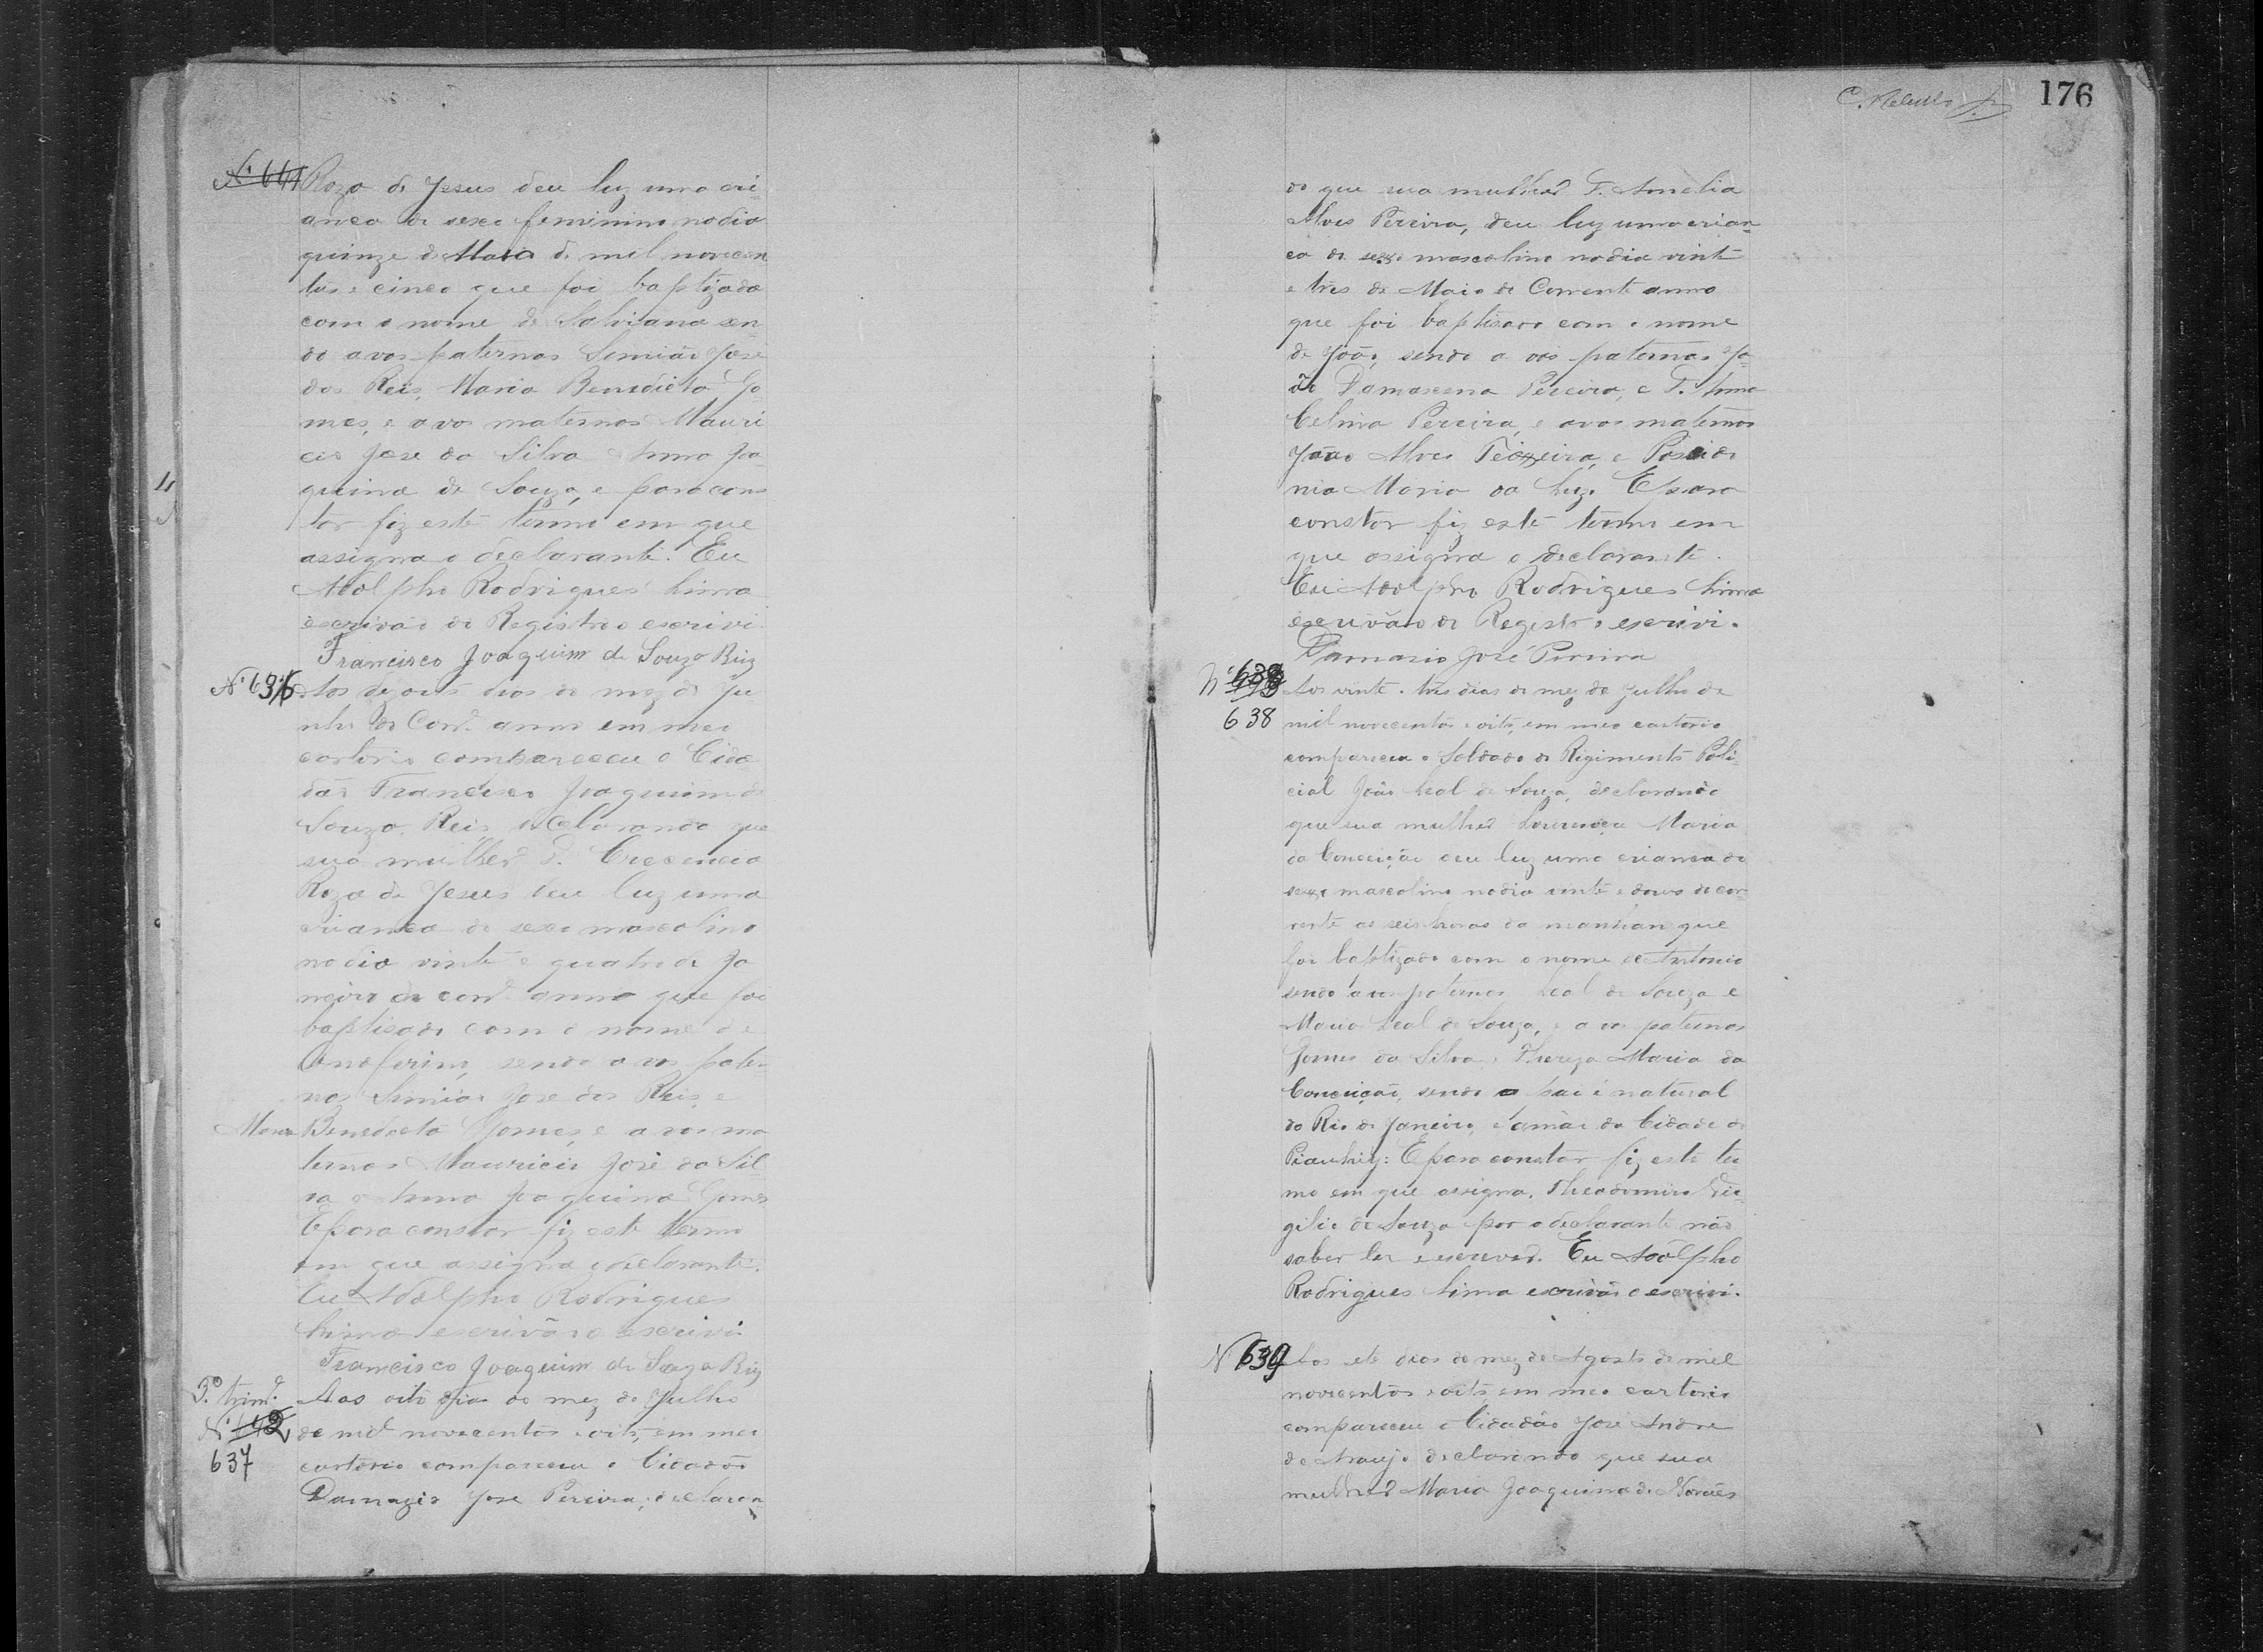 N.º 641 Roza de Jesus deu luz uma cri-
ança do sexo feminino no dia
quinze de Maio de mil novecen-
tos e cinco que foi baptizada
com o nome de Salviana sen-
do avos paternos Simião José
dos Reis, Maria Benedicta Go-
mes, e avos maternos Mauri
cio Jose da Silva Anna Joa-
quina de Souza, e para cons
tar fiz este termo em que
assigna o declarante. Eu
Adolpho Rodrigues Lima
escrivão do Registro o escrivi.
Francisco Joaquim de Souza Reis
N.º 636 Aos dezoito dias do mez de Ju
nho do Corr.e anno em meu
cartorio compareceu o Cida-
dão Francisco Joaquim de
Souza Reis, declarando que
sua mulher D. Crecencia
Roza de Jesus deu luz uma
criança do sexo masculino
no dia vinte e quatro de Ja
neiro do corr.e anno que foi
baptisado com o nome de
sendo avos pater-
nos Simião Jose dos Reis, e
Maria Benedicta Gomes, e avos ma
ternos Mauricio José da Sil-
va e Anna Joaquina Gomes
E para constar fiz este termo
em que assigna o declarante.
Eu Adolpho Rodrigues
Lima escrivão o escrivi
Francisco Joaquim de Souza Reis
3.º trim.e Aos oito dias do mez de Julho
N.º 142 de mil novecentos e oito, em meu
637 cartorio compareceu o Cidadão
Damazio Jose Pereira, declaran-
176
do que sua mulher D. Amelia
Alves Pereira, deu luz uma crian-
ça do sexo masculino no dia vinte
e tres de Maio do Corrente anno
que foi baptisado com o nome
de João, sendo avós paternos Jo-
ão Damascena Pereira, e D. Anna
Celina Pereira, e avos maternos
João Alves Teixeira, e Possido
nia Maria da Luz. E para
constar fiz este termo em
que assigna o declarante.
Eu Adolpho Rodrigues Lima
escrivão do Registro o escrivi.
Damasio José Pereira
N.º Aos vinte e tres dias do mez de Julho de
638 mil novecentos e oito, em meo cartorio
compareceu o Soldado do Rigimento Poli-
cial João Leal de Souza, declarando
que sua mulher Lourença Maria
da Conceição deu luz uma criança do
sexo masculino no dia vinte e douis do cor-
rente as seis horas da manhan que
foi baptizado com o nome de Antonio
sendo avos paternos Leal de Souza e
Maria Leal de Souza, e avos paternos
Gomes da Silva e Thereza Maria da
Conceição, sendo o pai é natural
do Rio de Janeiro, e a mãe da Cidade do
Piauhiy: E para constar fiz este ter
mo em que assigna, Theodomiro Vir
gilio de Souza por o declarante não
saber ler e escrever. Eu Adolpho
Rodrigues Lima escrivão o escrivi.
N 639 Aos sete dias do mez de Agosto de mil
novecentos e oito em meo cartorio
compareceu o Cidadão José Andre
de Araujo declarando que sua
mulher Maria Joaquina de Novães